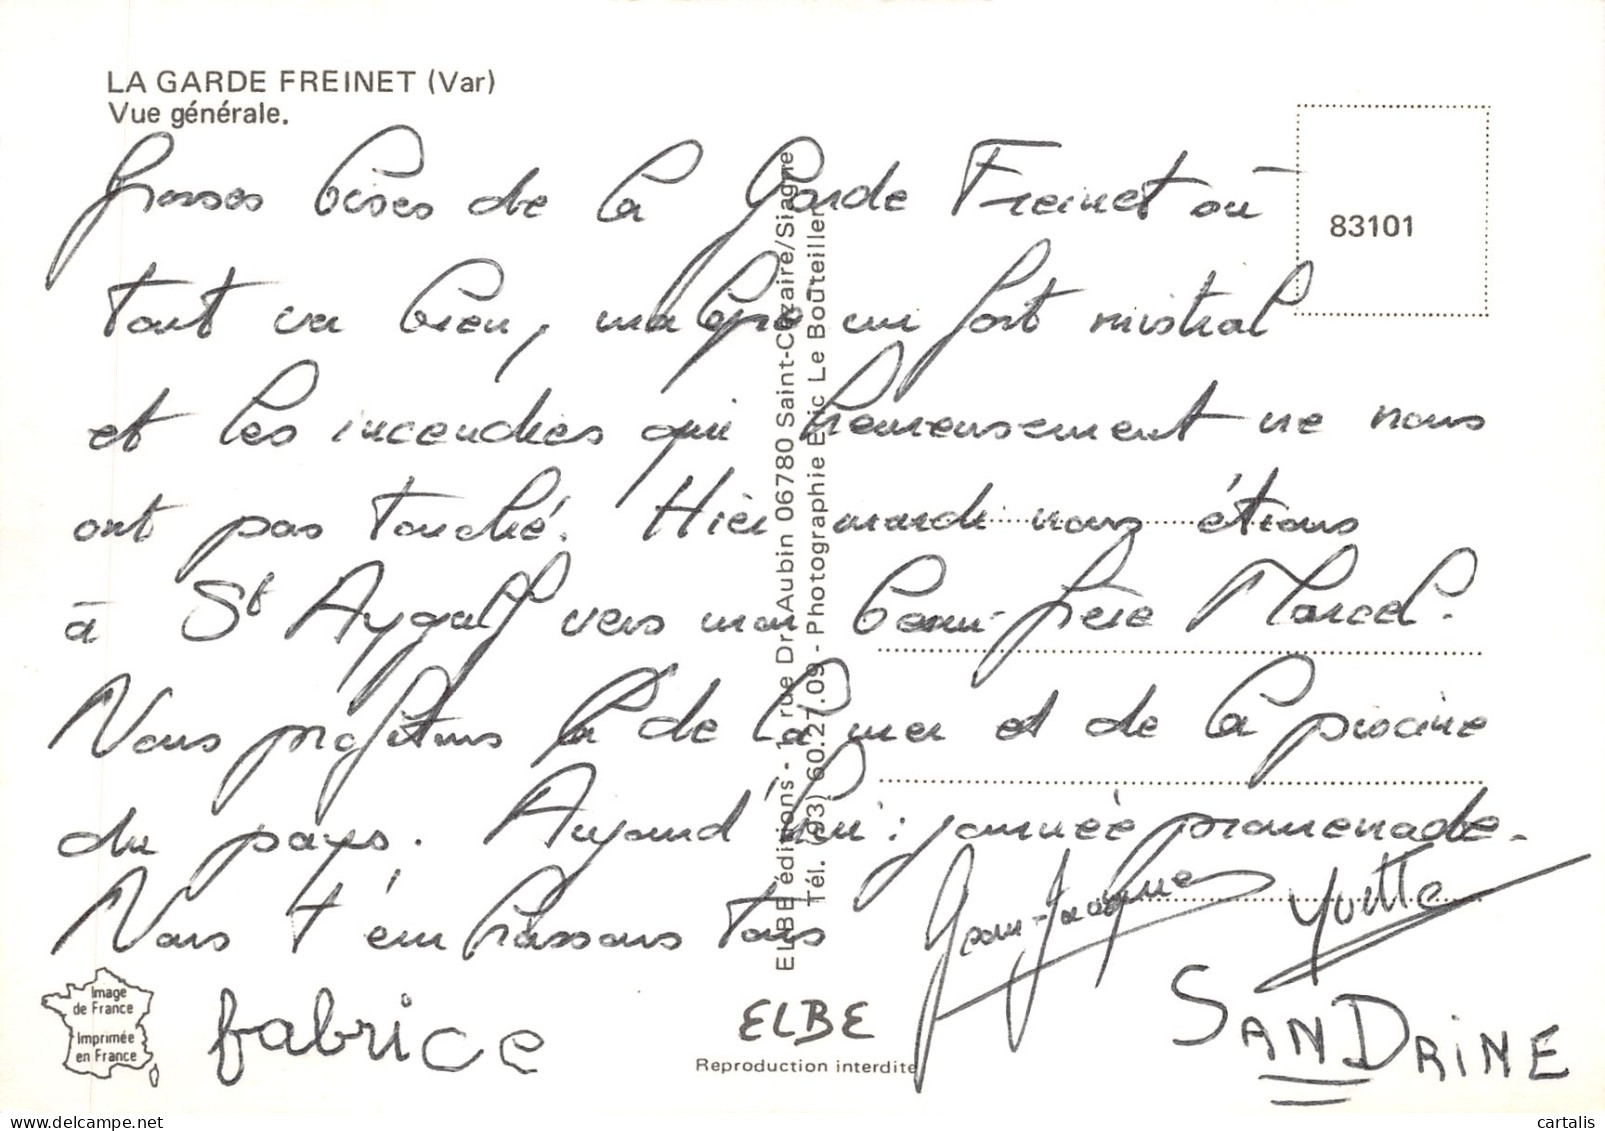 LA GARDE FREINET (Var)
Vue générale.
Grosses bises de la Garde Freinet où
tout va bien, malgré un fort mistral
et les incendies qui heureusement ne nous
ont pas touché. Hier mardi nous étions
à St Aygulf vers mon beau-frère Marcel.
Nous profitons là de la mer et de la piscine
du pays. Aujourd'hui : journée promenade.
Nous t'embrassons tous
Jean-Jacques
Yvette
fabrice
SANDRINE
83101
ELBE éditions - 1 rue Dr Aubin 06780 Saint-Cézaire/Siagne
Tél. (93) 60.27.09 - Photographie Eric Le Boûteiller
Image
de France
Imprimée
en France
ELBE
Reproduction interdite
cartalis